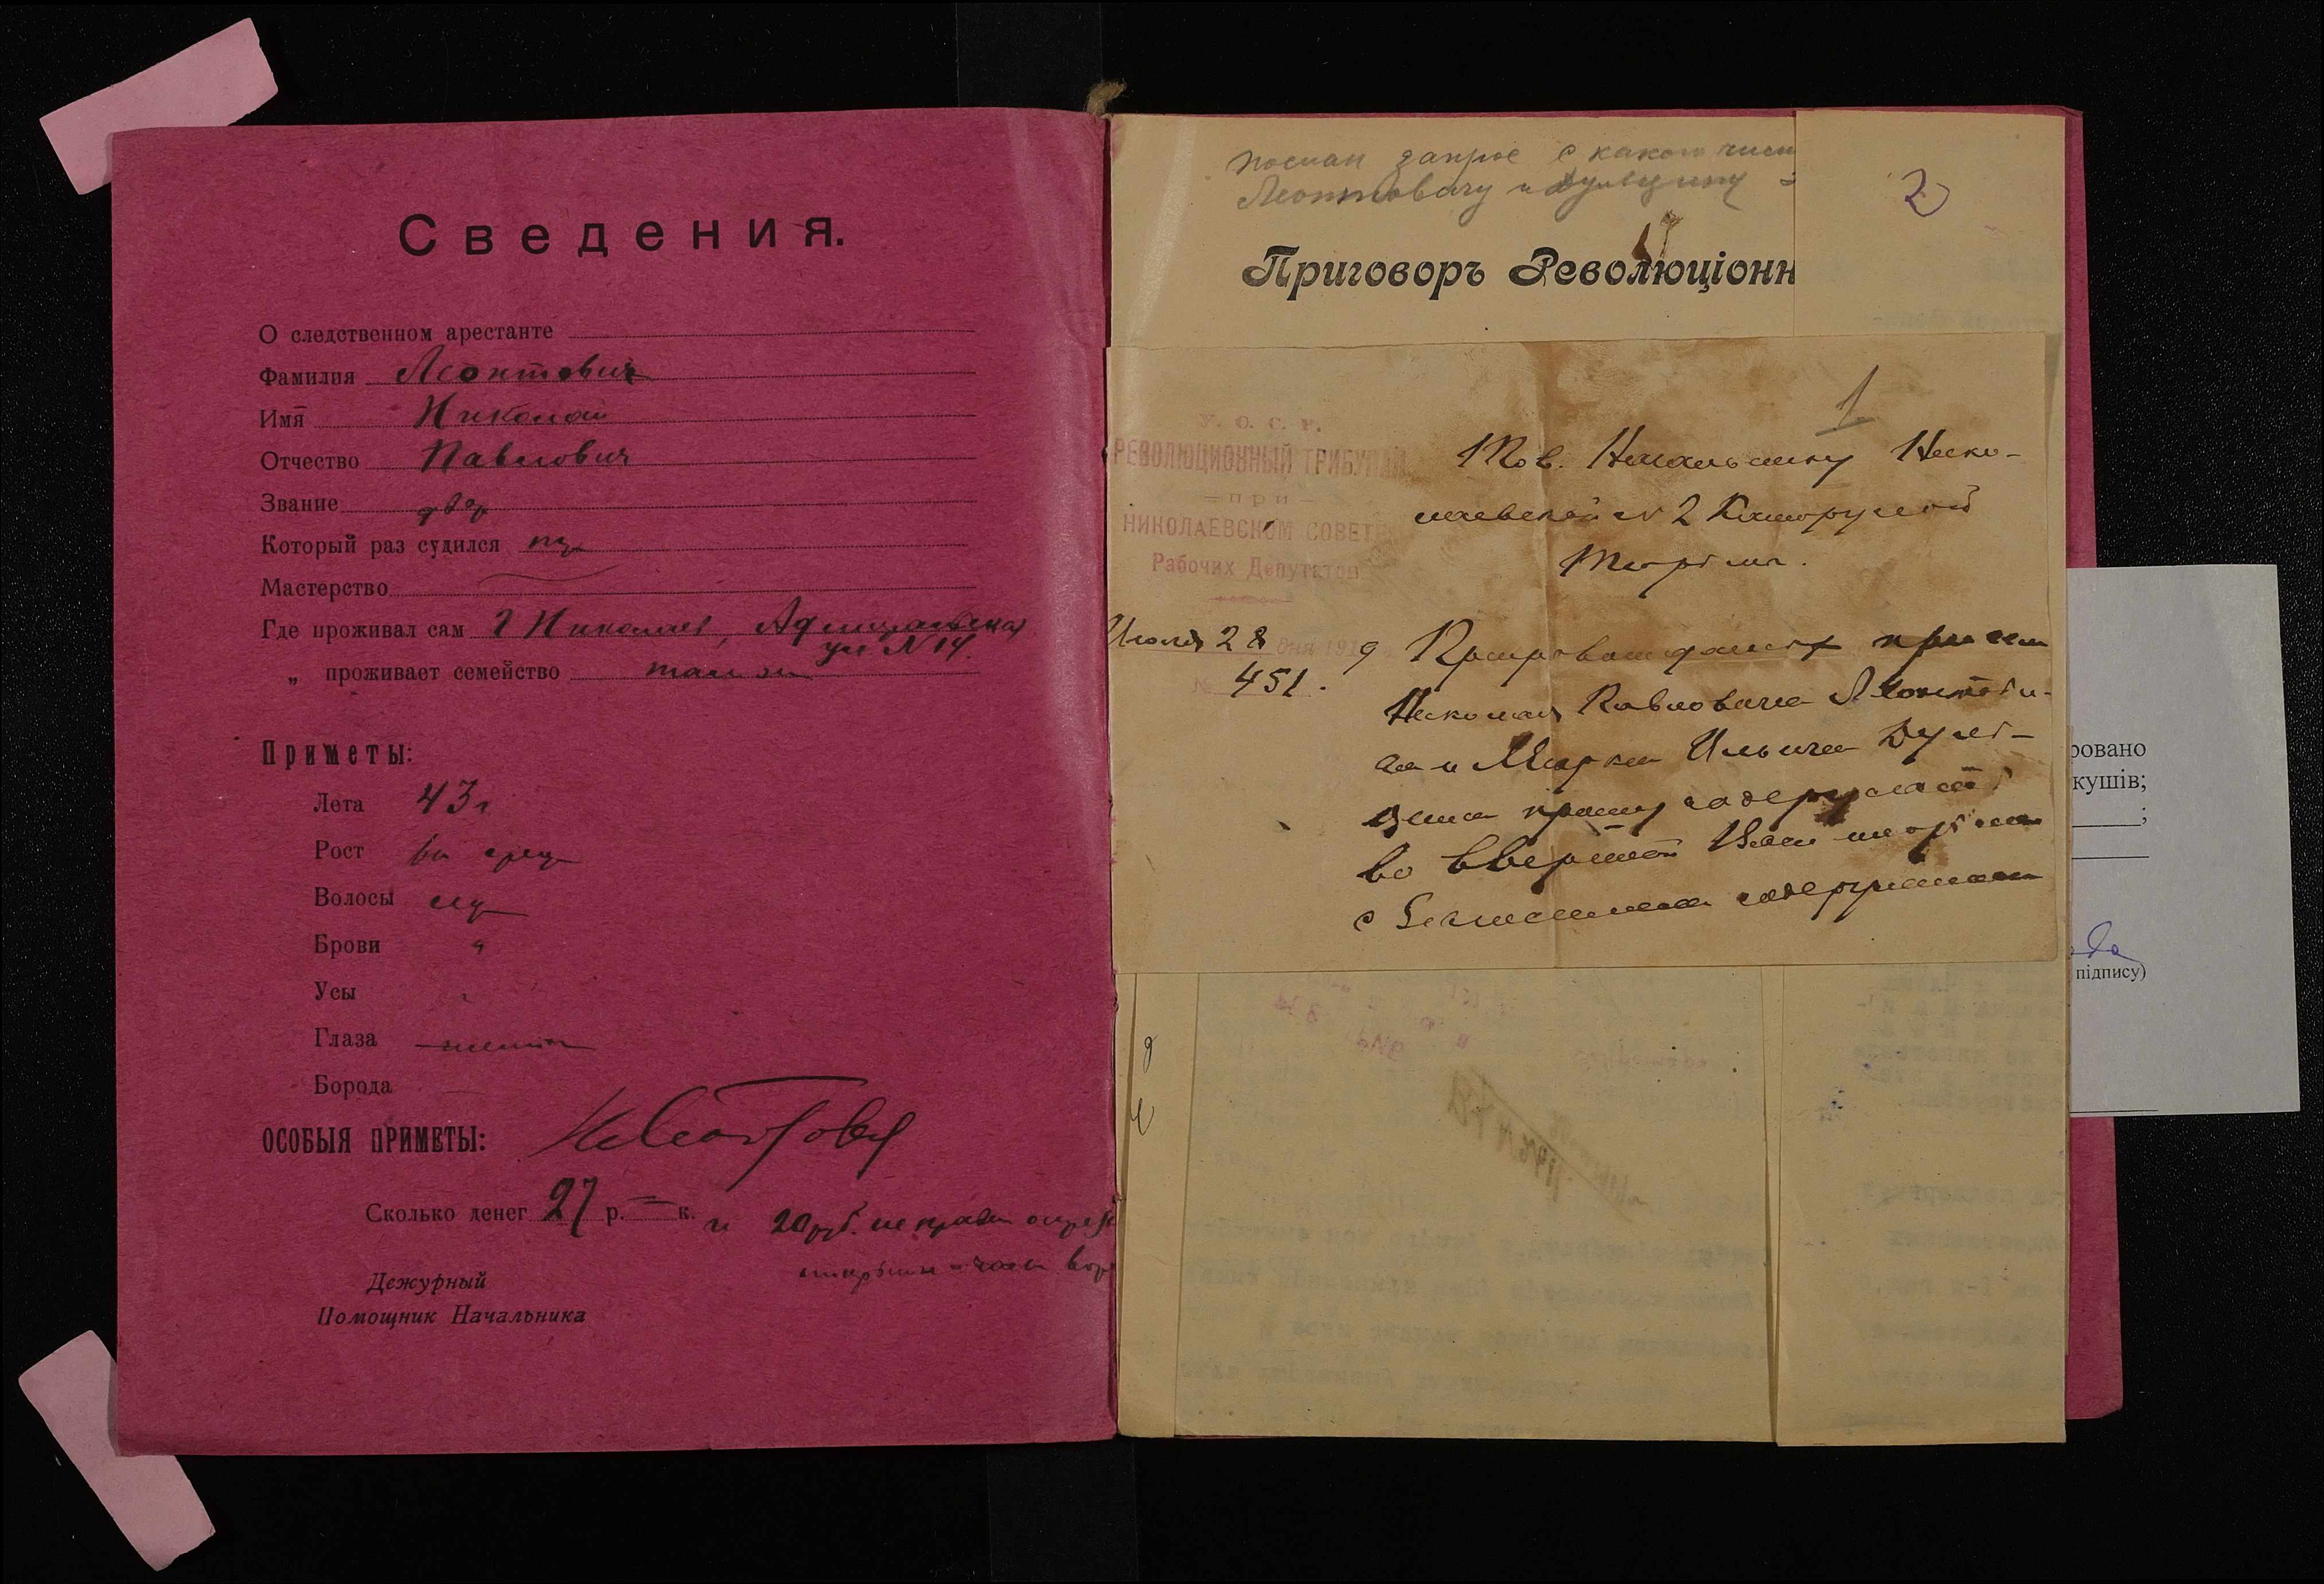 Сведения.
О следственном арестанте
Фамилия Леонтович
Имя Николай
Отчество Павлович
Звание двор
Который раз судился
Мастерство
Где проживал сам г Николаев, Адмиральская
ул N 14.
„ проживает семейство там же
Приметы:
Лета 43 г
Рост
Волосы
Брови
Усы
Глаза
Борода
ОСОБЫЯ ПРИМЕТЫ:
Сколько денег 27 р. — к. и 20 руб.
часы
Дежурный
Помощник Начальника
послан запрос с какого числ
Леонтовичу и
2
Приговоръ Революціонн
1
У. С. С. Р.
РЕВОЛЮЦИОННЫЙ ТРИБУНАЛ
— при —
НИКОЛАЕВСКОМ СОВЕТЕ
Рабочих Депутатов
Июля 28 дня 1919
№ 451.
Тов. Начальнику Нико-
лаевской № 2 Каторжной
Тюрьмы.
Препровождаемых при сем
Николая Павловича Леонтови-
ча и Марка Ильича
прошу содержать
во вверенной Вам тюрьме
с содержанием
ровано
кушів;
;
підпису)